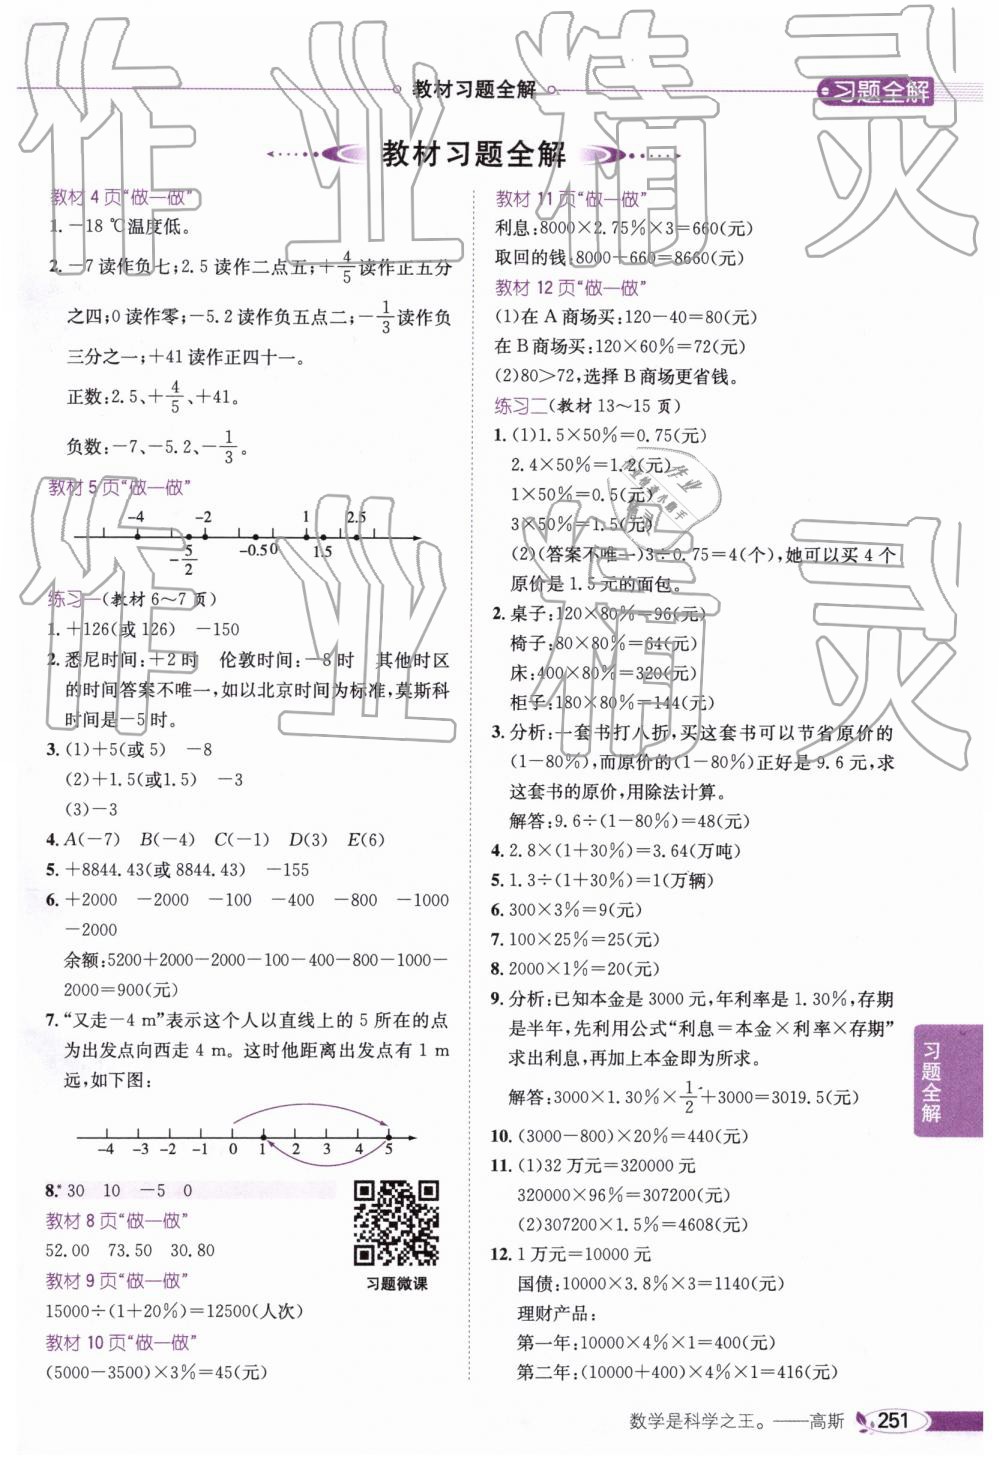 教材习题全解
习题全解
教材习题全解
教材 4 页“做一做”
1. －18 ℃温度低。
2. －7 读作负七;2.5 读作二点五;＋4/5读作正五分
之四;0 读作零;－5.2 读作负五点二;－1/3读作负
三分之一;＋41 读作正四十一。
正数:2.5、＋4/5、＋41。
负数:－7、－5.2、－1/3。
教材 5 页“做一做”
－4 －2 1 2.5
－5/2 －0.5 0 1.5
练习一(教材 6～7 页)
1. ＋126(或 126) －150
2. 悉尼时间:＋2 时 伦敦时间:－8 时 其他时区
的时间答案不唯一,如以北京时间为标准,莫斯科
时间是－5 时。
3. (1)＋5(或 5) －8
(2)＋1.5(或1.5) －3
(3)－3
4. A(－7) B(－4) C(－1) D(3) E(6)
5. ＋8844.43(或 8844.43) －155
6. ＋2000 －2000 －100 －400 －800 －1000
－2000
余额:5200＋2000－2000－100－400－800－1000－
2000＝900(元)
7. “又走－4 m”表示这个人以直线上的 5 所在的点
为出发点向西走 4 m。这时他距离出发点有 1 m
远,如下图:
－4 －3 －2 －1 0 1 2 3 4 5
8.* 30 10 －5 0
教材 8 页“做一做”
52.00 73.50 30.80
教材 9 页“做一做”
15000÷(1＋20%)＝12500(人次)
教材 10 页“做一做”
(5000－3500)×3%＝45(元)
习题微课
教材 11 页“做一做”
利息:8000×2.75%×3＝660(元)
取回的钱:8000＋660＝8660(元)
教材 12 页“做一做”
(1)在 A 商场买:120－40＝80(元)
在 B 商场买:120×60%＝72(元)
(2)80＞72,选择 B 商场更省钱。
练习二(教材 13～15 页)
1. (1)1.5×50%＝0.75(元)
2.4×50%＝1.2(元)
1×50%＝0.5(元)
3×50%＝1.5(元)
(2)(答案不唯一)3÷0.75＝4(个),她可以买 4 个
原价是 1.5 元的面包。
2. 桌子:120×80%＝96(元)
椅子:80×80%＝64(元)
床:400×80%＝320(元)
柜子:180×80%＝144(元)
3. 分析:一套书打八折,买这套书可以节省原价的
(1－80%),而原价的(1－80%)正好是 9.6 元,求
这套书的原价,用除法计算。
解答:9.6÷(1－80%)＝48(元)
4. 2.8×(1＋30%)＝3.64(万吨)
5. 1.3÷(1＋30%)＝1(万辆)
6. 300×3%＝9(元)
7. 100×25%＝25(元)
8. 2000×1%＝20(元)
9. 分析:已知本金是 3000 元,年利率是 1.30%,存期
是半年,先利用公式“利息＝本金×利率×存期”
求出利息,再加上本金即为所求。
解答:3000×1.30%×1/2＋3000＝3019.5(元)
10. (3000－800)×20%＝440(元)
11. (1)32 万元＝320000 元
320000×96%＝307200(元)
(2)307200×1.5%＝4608(元)
12. 1 万元＝10000 元
国债:10000×3.8%×3＝1140(元)
理财产品:
第一年:10000×4%×1＝400(元)
第二年:(10000＋400)×4%×1＝416(元)
习题全解
数学是科学之王。——高斯
251
作业精灵
作业精灵